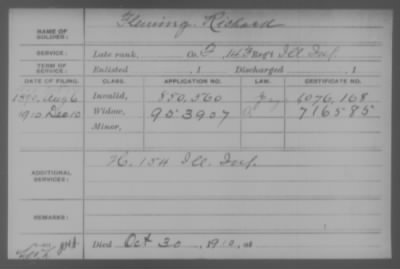 NAME OF SOLDIER: Fleming, Richard
SERVICE: Late rank, Co. F, 14 Ill. Inf.
TERM OF SERVICE: Enlisted , 1 Discharged , 1
DATE OF FILING. CLASS. APPLICATION NO. LAW. CERTIFICATE NO.
Aug 6 Invalid, 850,560 1076,168
1910 Dec 10 Widow, 953907 716585
Minor,
ADDITIONAL SERVICES: K. 154 Ill. Inf.
REMARKS:
Died Oct 30, 1910, at